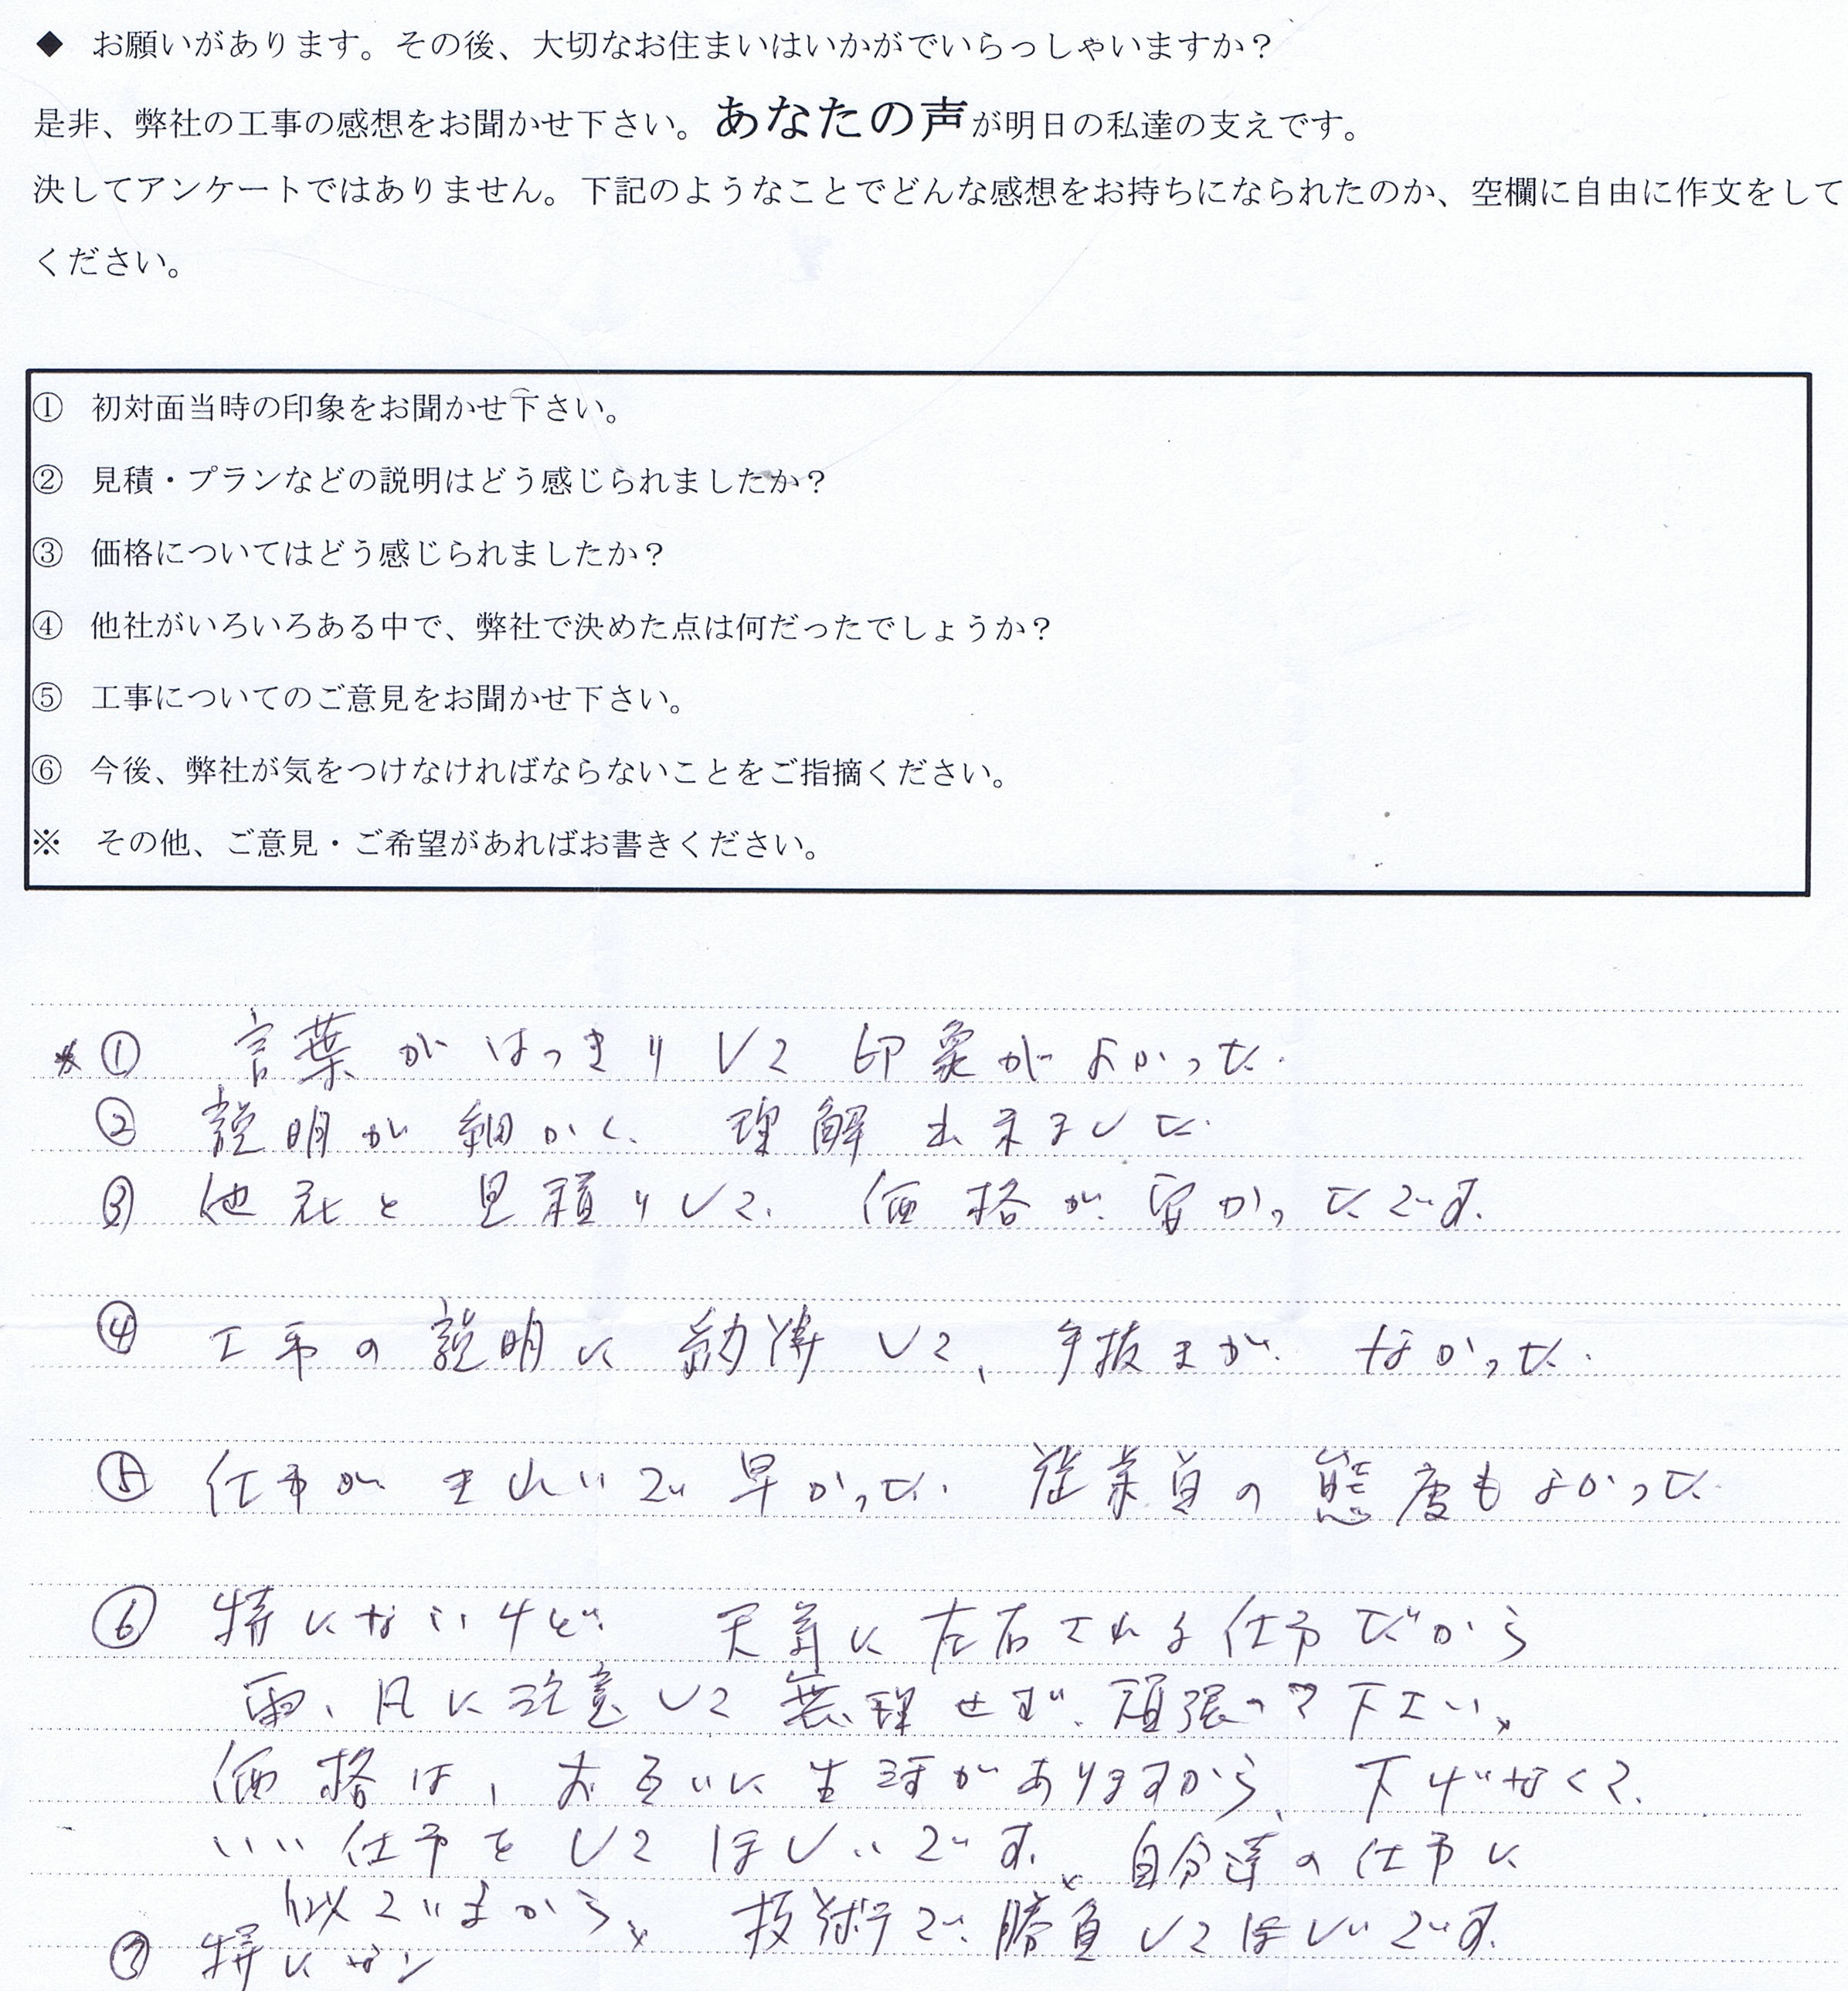 ◆ お願いがあります。その後、大切なお住まいはいかがでいらっしゃいますか？
是非、弊社の工事の感想をお聞かせ下さい。あなたの声が明日の私達の支えです。
決してアンケートではありません。下記のようなことでどんな感想をお持ちになられたのか、空欄に自由に作文をして
ください。
① 初対面当時の印象をお聞かせ下さい。
② 見積・プランなどの説明はどう感じられましたか？
③ 価格についてはどう感じられましたか？
④ 他社がいろいろある中で、弊社で決めた点は何だったでしょうか？
⑤ 工事についてのご意見をお聞かせ下さい。
⑥ 今後、弊社が気をつけなければならないことをご指摘ください。
※ その他、ご意見・ご希望があればお書きください。
① 言葉がはっきりして印象がよかった.
② 説明が細かく、理解出来ました.
③ 他社と見積りして、価格が安かったです.
④ 工事の説明に納得して、手抜きがなかった.
⑤ 仕事がきれいで早かった. 従業員の態度もよかった
⑥ 特にないけど 天気に左右される仕事だから
雨、风に注意して無理せず、頑張って下さい、
価格は、お互いに生活がありますから、下げなくて、
いい仕事をしてほしいです、自分達の仕事に
似ていまから、技術で勝負してほしいです.
⑦ 特にナシ